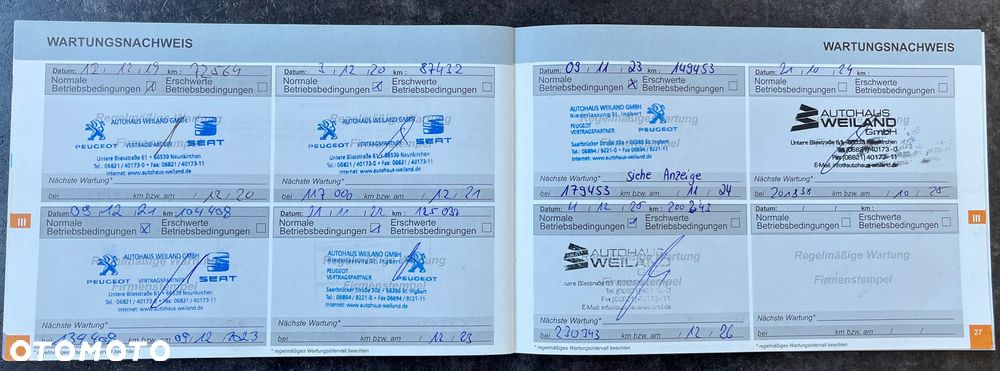 WARTUNGSNACHWEIS
Datum: 12 , 12 , 19 km : 72564
Normale Betriebsbedingungen
Erschwerte Betriebsbedingungen
Regelmäßige Wartung
AUTOHAUS WEILAND GMBH
PEUGEOT
VERTRAGSPARTNER
SEAT
Firmenstempel
Untere Bliesstraße 61 • 66539 Neunkirchen
Tel.: 06821 / 40173-0 • Fax: 06821 / 40173-11
Internet: www.autohaus-weiland.de
Nächste Wartung*
bei km bzw. am / 12 / 20
Datum: 3 , 12 , 20 km : 87432
Normale Betriebsbedingungen
Erschwerte Betriebsbedingungen
Regelmäßige Wartung
AUTOHAUS WEILAND GMBH
PEUGEOT
VERTRAGSPARTNER
SEAT
Firmenstempel
Untere Bliesstraße 61 • 66539 Neunkirchen
Tel.: 06821 / 40173-0 • Fax: 06821 / 40173-11
Internet: www.autohaus-weiland.de
Nächste Wartung*
bei 117 000 km bzw. am / 12 / 21
III
Datum: 09 , 12 , 21 km : 104408
Normale Betriebsbedingungen
Erschwerte Betriebsbedingungen
Regelmäßige Wartung
AUTOHAUS WEILAND GMBH
PEUGEOT
VERTRAGSPARTNER
SEAT
Firmenstempel
Untere Bliesstraße 61 • 66539 Neunkirchen
Tel.: 06821 / 40173-0 • Fax: 06821 / 40173-11
Internet: www.autohaus-weiland.de
Nächste Wartung*
bei 134408 km bzw. am 09 / 12 / 2023
* regelmäßiges Wartungsintervall beachten
Datum: 11 , 22 km : 125 037
Normale Betriebsbedingungen
Erschwerte Betriebsbedingungen
Regelmäßige Wartung
AUTOHAUS WEILAND GMBH
Niederlassung St. Ingbert
PEUGEOT
VERTRAGSPARTNER
PEUGEOT
Firmenstempel
Saarbrücker Straße 30a • 66386 St. Ingbert
Tel.: 06894 / 9221-0 • Fax 06894 / 9221-11
Internet: www.autohaus-weiland.de
Nächste Wartung*
bei km bzw. am / 12 / 23
* regelmäßiges Wartungsintervall beachten
WARTUNGSNACHWEIS
Datum: 09 , 11 , 23 km : 149453
Normale Betriebsbedingungen
Erschwerte Betriebsbedingungen
Regelmäßige Wartung
AUTOHAUS WEILAND GMBH
Niederlassung St. Ingbert
PEUGEOT
VERTRAGSPARTNER
PEUGEOT
Firmenstempel
Saarbrücker Straße 30a • 66386 St. Ingbert
Tel.: 06894 / 9221-0 • Fax 06894 / 9221-11
Internet: www.autohaus-weiland.de
Nächste Wartung* siehe Anzeige
bei 179453 km bzw. am / 11 / 24
Datum: 21 , 10 , 24 km :
Normale Betriebsbedingungen
Erschwerte Betriebsbedingungen
AUTOHAUS
WEILAND
GmbH
Untere Bliesstraße 61
66539 Neunkirchen
Tel.(06821) 40173-0
Fax(06821) 40173-11
E-Mail: info@autohaus-weiland.de
Nächste Wartung*
bei 201838 km bzw. am / 10 / 25
III
Datum: 4 , 12 , 25 km : 200343
Normale Betriebsbedingungen
Erschwerte Betriebsbedingungen
AUTOHAUS
WEILAND
Nächste Wartung*
bei 230343 km bzw. am / 12 / 26
* regelmäßiges Wartungsintervall beachten
Datum: / / km :
Normale Betriebsbedingungen
Erschwerte Betriebsbedingungen
Regelmäßige Wartung
Firmenstempel
Nächste Wartung*
bei km bzw. am / /
* regelmäßiges Wartungsintervall beachten
27
OTOMOTO